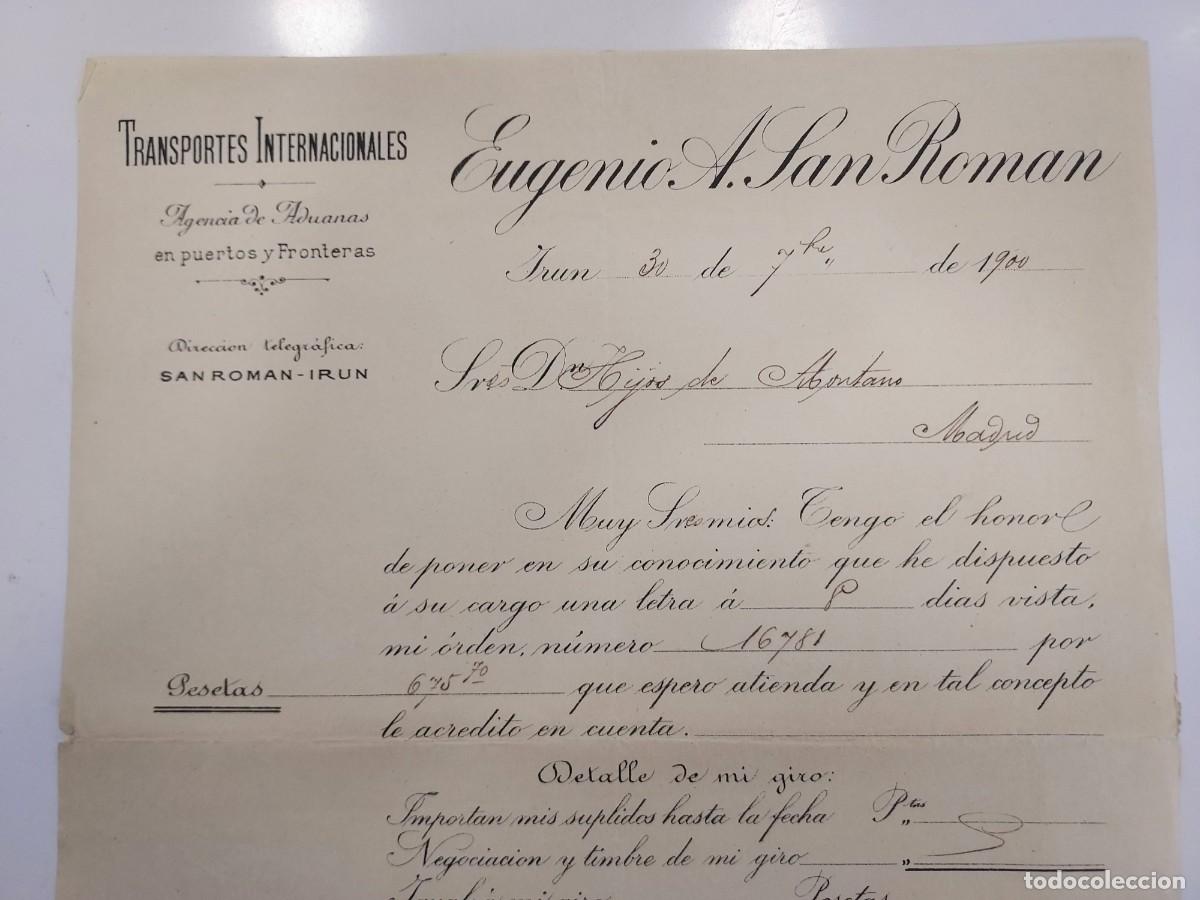 TRANSPORTES INTERNACIONALES
Agencia de Aduanas
en puertos y Fronteras
Direccion telegráfica:
SANROMAN-IRUN
Eugenio A. San Roman
Irun 30 de 7bre de 1900
Sres Dn Hijos de Montano
Madrid
Muy Sres mios: Tengo el honor
de poner en su conocimiento que he dispuesto
á su cargo una letra á 8 dias vista,
mi órden, número 16781 por
Pesetas 675 70 que espero atienda y en tal concepto
le acredito en cuenta.
Detalle de mi giro:
Importan mis suplidos hasta la fecha Ptas „
Negociacion y timbre de mi giro „
Igual á mi giro Pesetas
todocoleccion